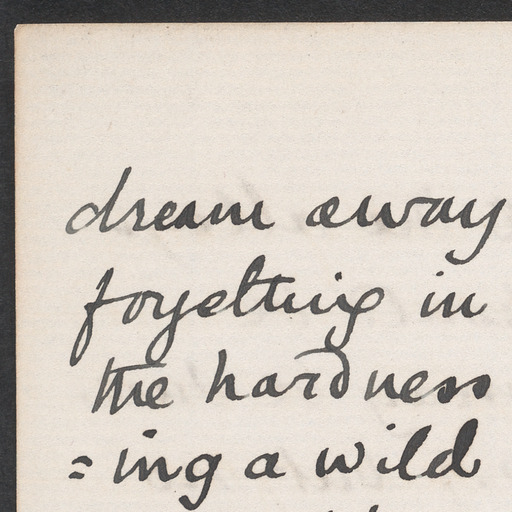 dream away
forgetting in
the hardness
=ing a wild